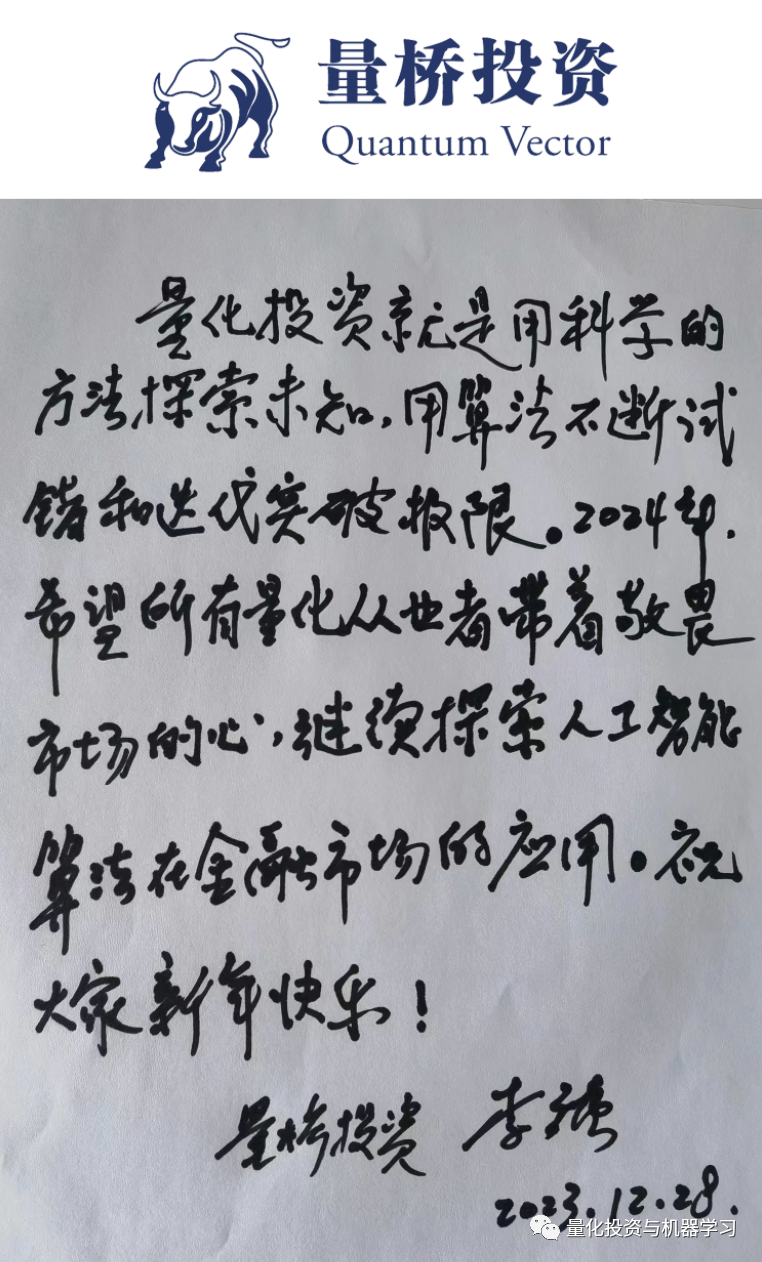 量桥投资
Quantum Vector
量化投资就是用科学的
方法探索未知,用算法不断试
错和迭代突破极限。2024年,
希望所有量化从业者带着敬畏
市场的心,继续探索人工智能
算法在金融市场的应用。祝
大家新年快乐!
量桥投资 李
2023.12.28.
量化投资与机器学习